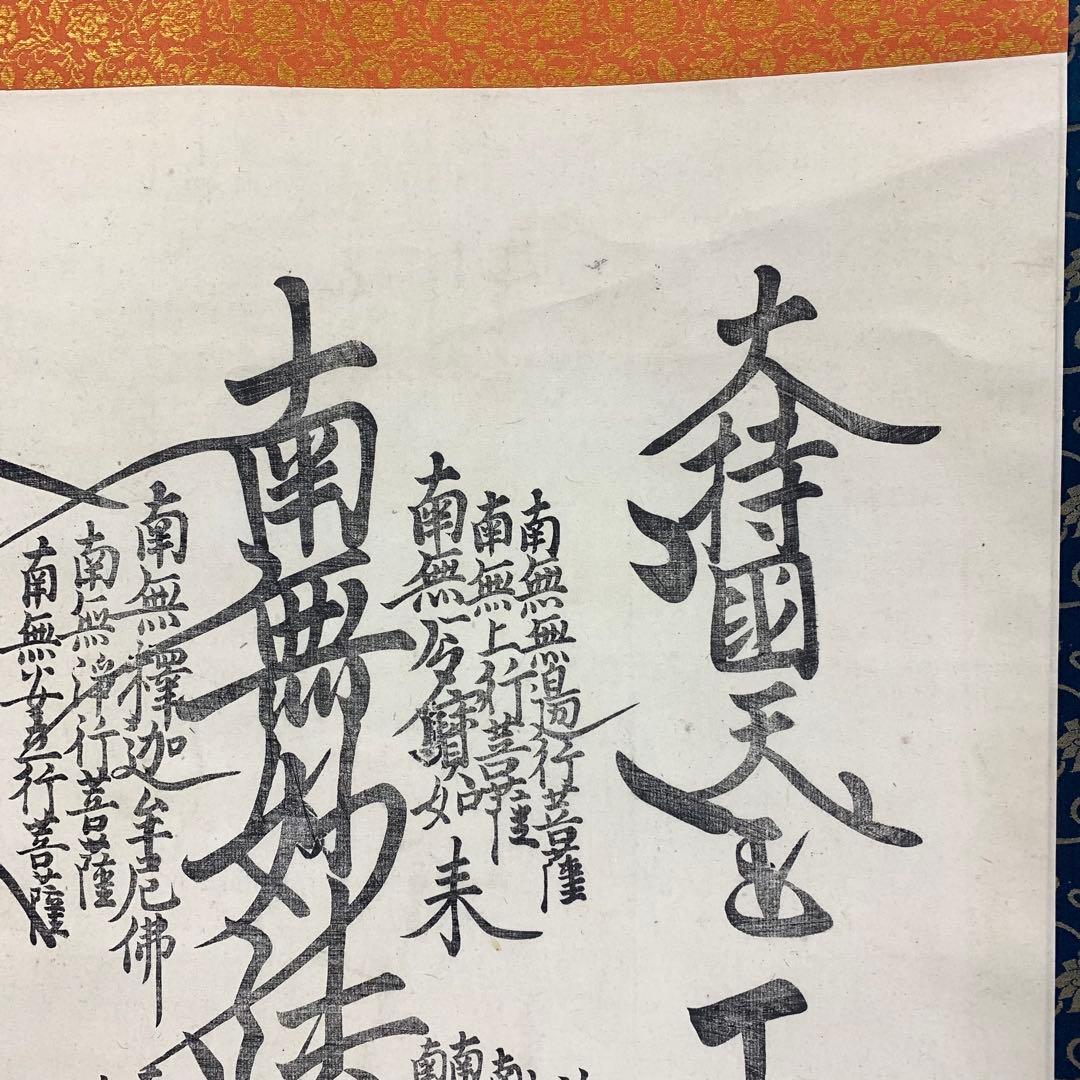 大持國天王
南無無邊行菩薩
南無上行菩薩
南無多寶如来
南無妙法
南無釋迦牟尼佛
南無淨行菩薩
南無安立行菩薩